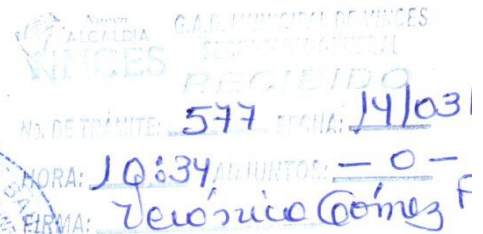 Nueva
ALCALDÍA
VINCES
G.A.D. MUNICIPAL DE VINCES
SECRETARIA GENERAL
RECIBIDO
No. DE TRÁMITE: 577 FECHA: 14/03
HORA: 10:34 ADJUNTOS: — 0 —
FIRMA: Verónica Gómez